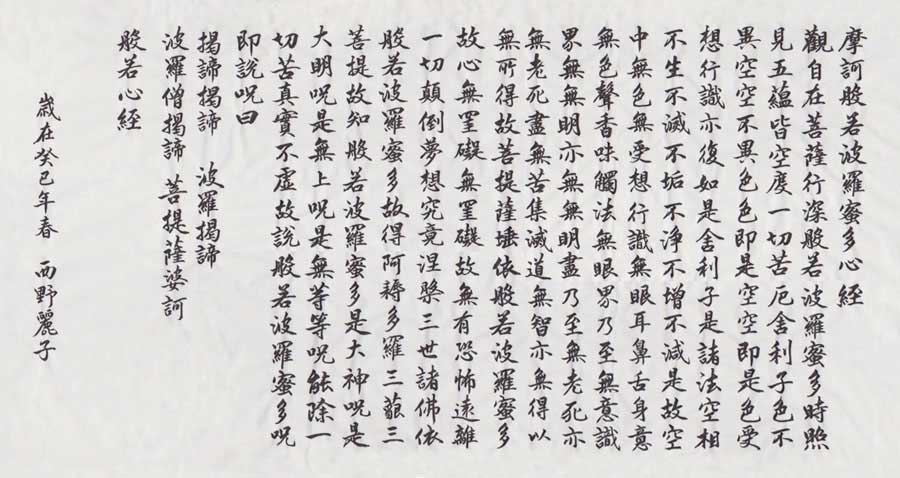 摩訶般若波羅蜜多心経
觀自在菩薩行深般若波羅蜜多時照
見五蘊皆空度一切苦厄舍利子色不
異空空不異色色即是空空即是色受
想行識亦復如是舍利子是諸法空相
不生不滅不垢不淨不增不減是故空
中無色無受想行識無眼耳鼻舌身意
無色聲香味觸法無眼界乃至無意識
界無無明亦無無明盡乃至無老死亦
無老死盡無苦集滅道無智亦無得以
無所得故菩提薩埵依般若波羅蜜多
故心無罣礙無罣礙故無有恐怖遠離
一切顛倒夢想究竟涅槃三世諸佛依
般若波羅蜜多故得阿耨多羅三藐三
菩提故知般若波羅蜜多是大神呪是
大明呪是無上呪是無等等呪能除一
切苦真實不虛故說般若波羅蜜多呪
即說呪曰
揭諦揭諦 波羅揭諦
波羅僧揭諦 菩提薩婆訶
般若心経
歲在癸巳年春 西野麗子